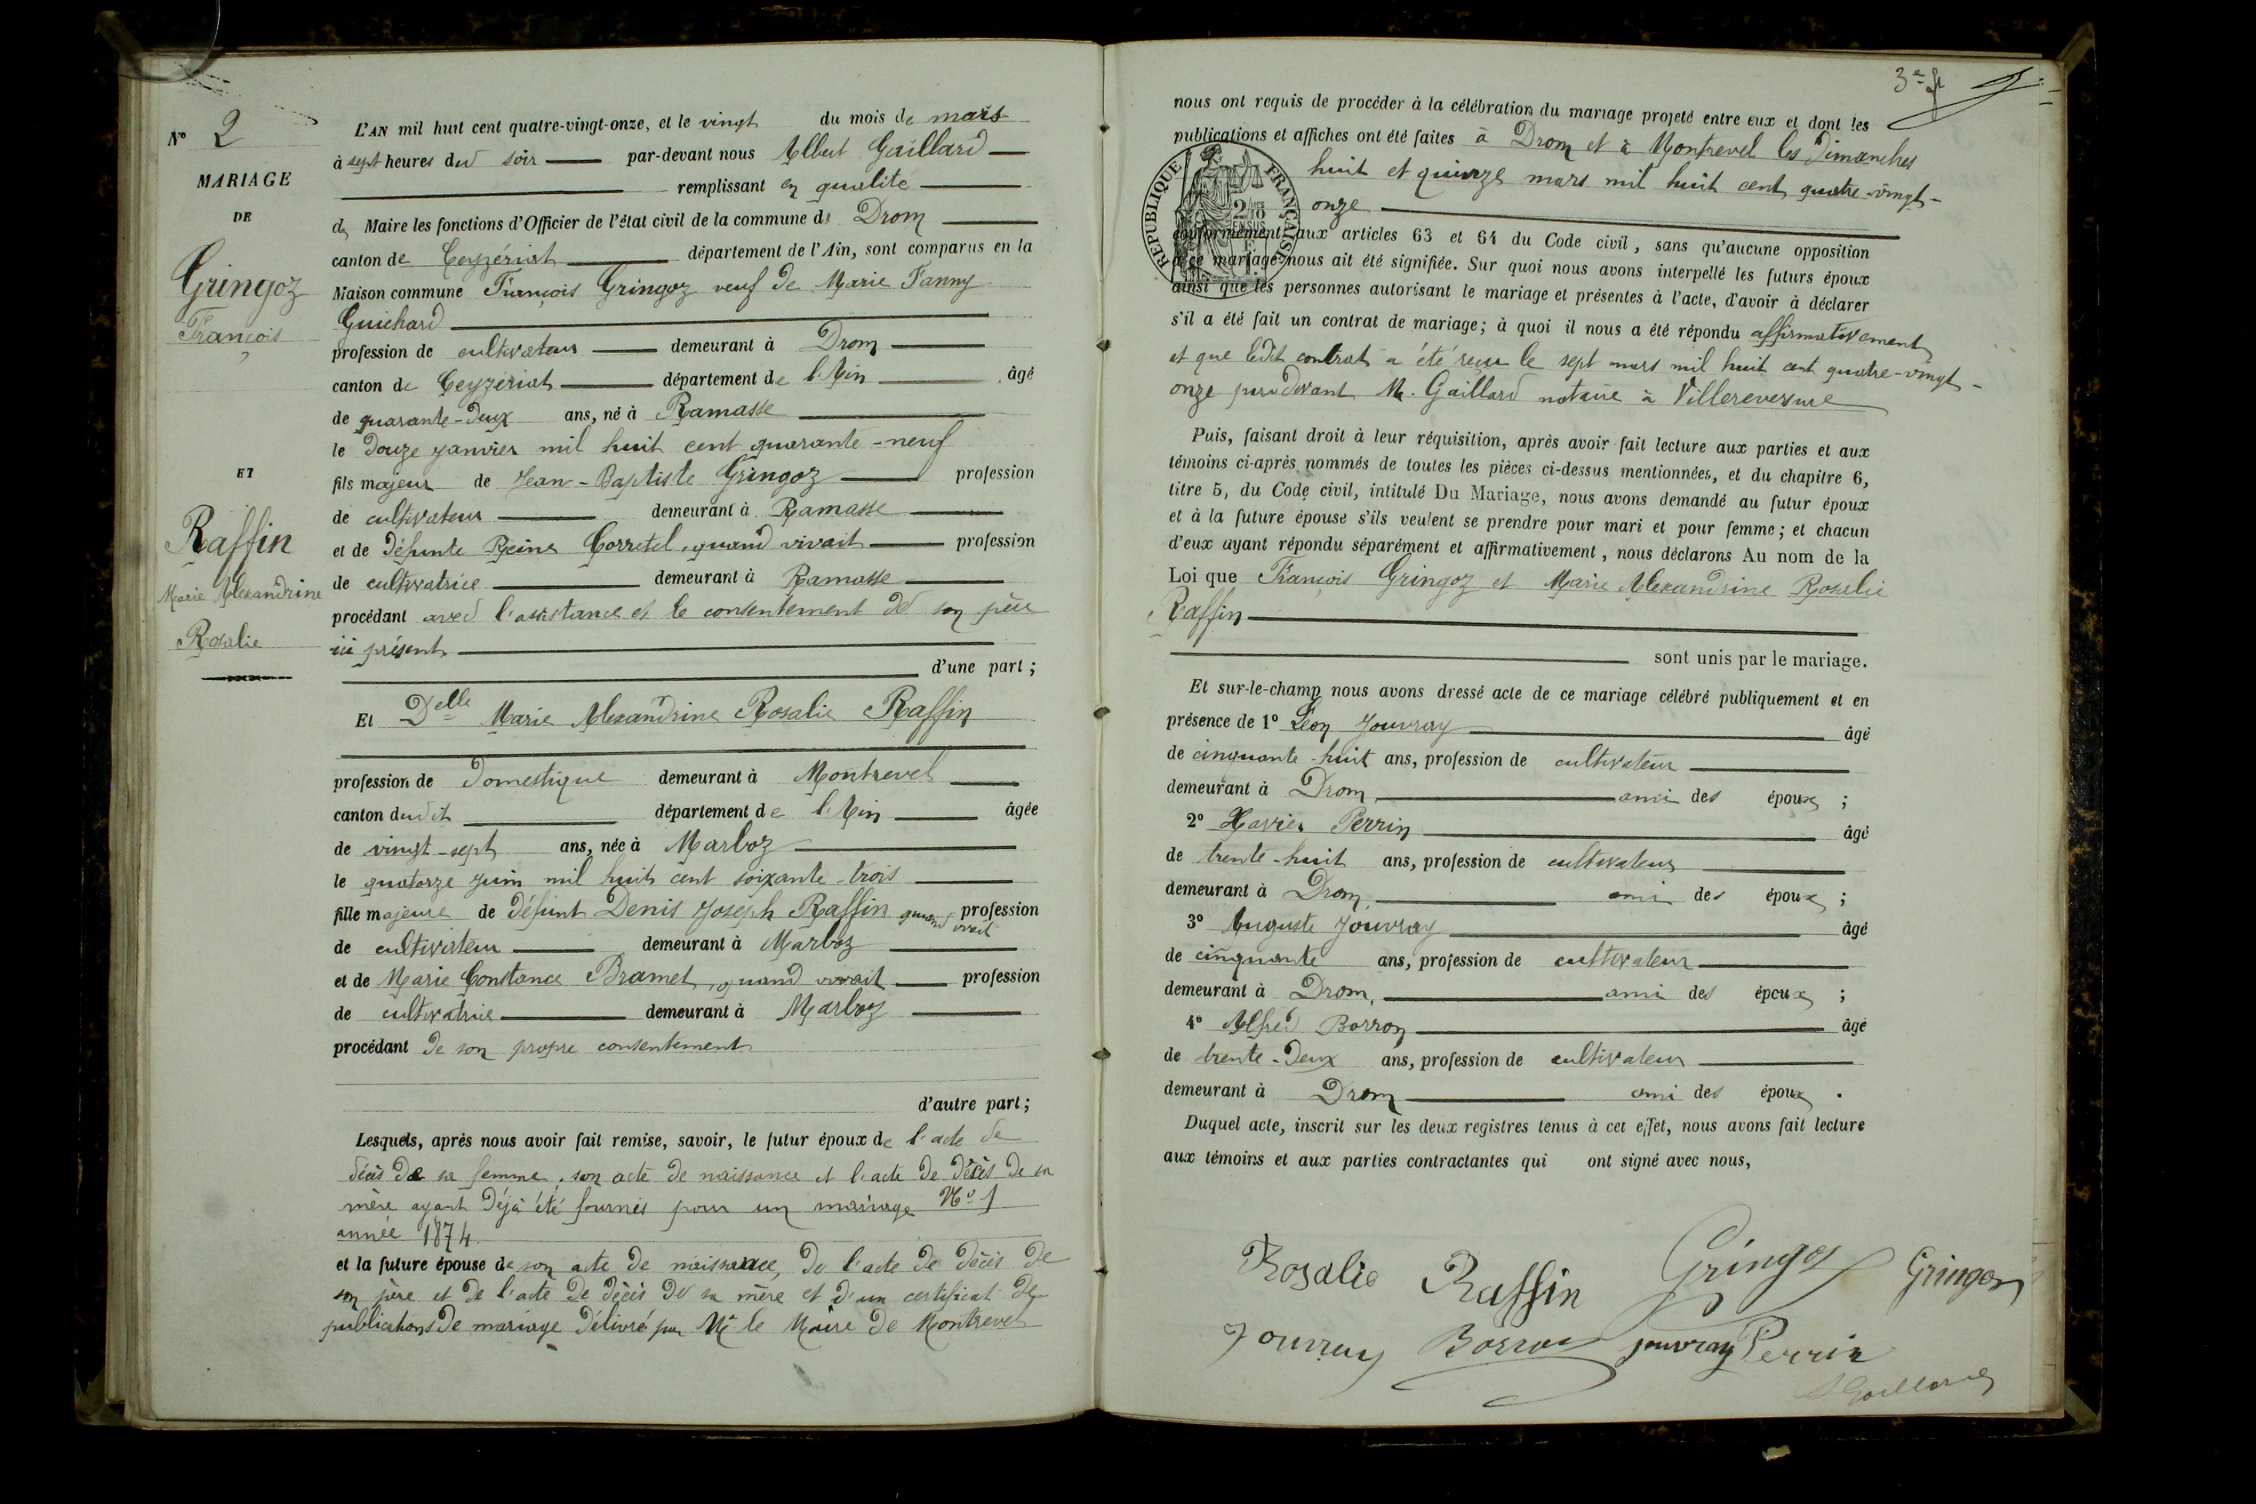 N° 2
MARIAGE
DE
Gringoz
François
ET
Raffin
Marie Alexandrine
Rosalie
L'AN mil huit cent quatre-vingt-onze, et le vingt du mois de mars
à sept heures du soir par-devant nous Albert Gaillard
remplissant en qualité
de Maire les fonctions d'Officier de l'état civil de la commune de Drom
canton de Ceyzériat département de l'Ain, sont comparus en la
Maison commune François Gringoz veuf de Marie Fanny
Guichard
profession de cultivateur demeurant à Drom
canton de Ceyzériat département de l'Ain âgé
de quarante-deux ans, né à Ramasse
le douze janvier mil huit cent quarante-neuf
fils majeur de Jean-Baptiste Gringoz profession
de cultivateur demeurant à Ramasse
et de défunte Reine Corretel, quand vivait profession
de cultivatrice demeurant à Ramasse
procédant avec l'assistance et le consentement de son père
ici présent
d'une part ;
Et Delle Marie Alexandrine Rosalie Raffin
profession de domestique demeurant à Montrevel
canton dudit département de l'Ain âgée
de vingt-sept ans, née à Marboz
le quatorze juin mil huit cent soixante-trois
fille majeure de défunt Denis Joseph Raffin quand vivait profession
de cultivateur demeurant à Marboz
et de Marie Constance Bramet, quand vivait profession
de cultivatrice demeurant à Marboz
procédant de son propre consentement
d'autre part ;
Lesquels, après nous avoir fait remise, savoir, le futur époux de l'acte de
décès de sa femme, son acte de naissance et l'acte de décès de sa
mère ayant déjà été fournis pour un mariage N° 1
année 1874.
et la future épouse de son acte de naissance, de l'acte de décès de
son père et de l'acte de décès de sa mère et d'un certificat de
publications de mariage délivré par Mr le Maire de Montrevel
3e ft
nous ont requis de procéder à la célébration du mariage projeté entre eux et dont les
publications et affiches ont été faites à Drom et à Montrevel les dimanches
huit et quinze mars mil huit cent quatre-vingt-
onze
RÉPUBLIQUE FRANÇAISE
2/10 EN SUS
conformément aux articles 63 et 64 du Code civil, sans qu'aucune opposition
à ce mariage nous ait été signifiée. Sur quoi nous avons interpellé les futurs époux
ainsi que les personnes autorisant le mariage et présentes à l'acte, d'avoir à déclarer
s'il a été fait un contrat de mariage; à quoi il nous a été répondu affirmativement
et que ledit contrat a été reçu le sept mars mil huit cent quatre-vingt-
onze par devant Me. Gaillard notaire à Villereversure
Puis, faisant droit à leur réquisition, après avoir fait lecture aux parties et aux
témoins ci-après nommés de toutes les pièces ci-dessus mentionnées, et du chapitre 6,
titre 5, du Code civil, intitulé Du Mariage, nous avons demandé au futur époux
et à la future épouse s'ils veulent se prendre pour mari et pour femme; et chacun
d'eux ayant répondu séparément et affirmativement, nous déclarons Au nom de la
Loi que François Gringoz et Marie Alexandrine Rosalie
Raffin
sont unis par le mariage.
Et sur-le-champ nous avons dressé acte de ce mariage célébré publiquement et en
présence de 1° Léon Jouvray âgé
de cinquante-huit ans, profession de cultivateur
demeurant à Drom, ami des époux ;
2° Xavier Perrin âgé
de trente-huit ans, profession de cultivateur
demeurant à Drom, ami des époux ;
3° Auguste Jouvray âgé
de cinquante ans, profession de cultivateur
demeurant à Drom, ami des époux ;
4° Alfred Borron âgé
de trente-deux ans, profession de cultivateur
demeurant à Drom ami des époux .
Duquel acte, inscrit sur les deux registres tenus à cet effet, nous avons fait lecture
aux témoins et aux parties contractantes qui ont signé avec nous,
Rosalie Raffin Gringoz Gringoz
Jouvray Borron jouvray Perrin
A Gaillard